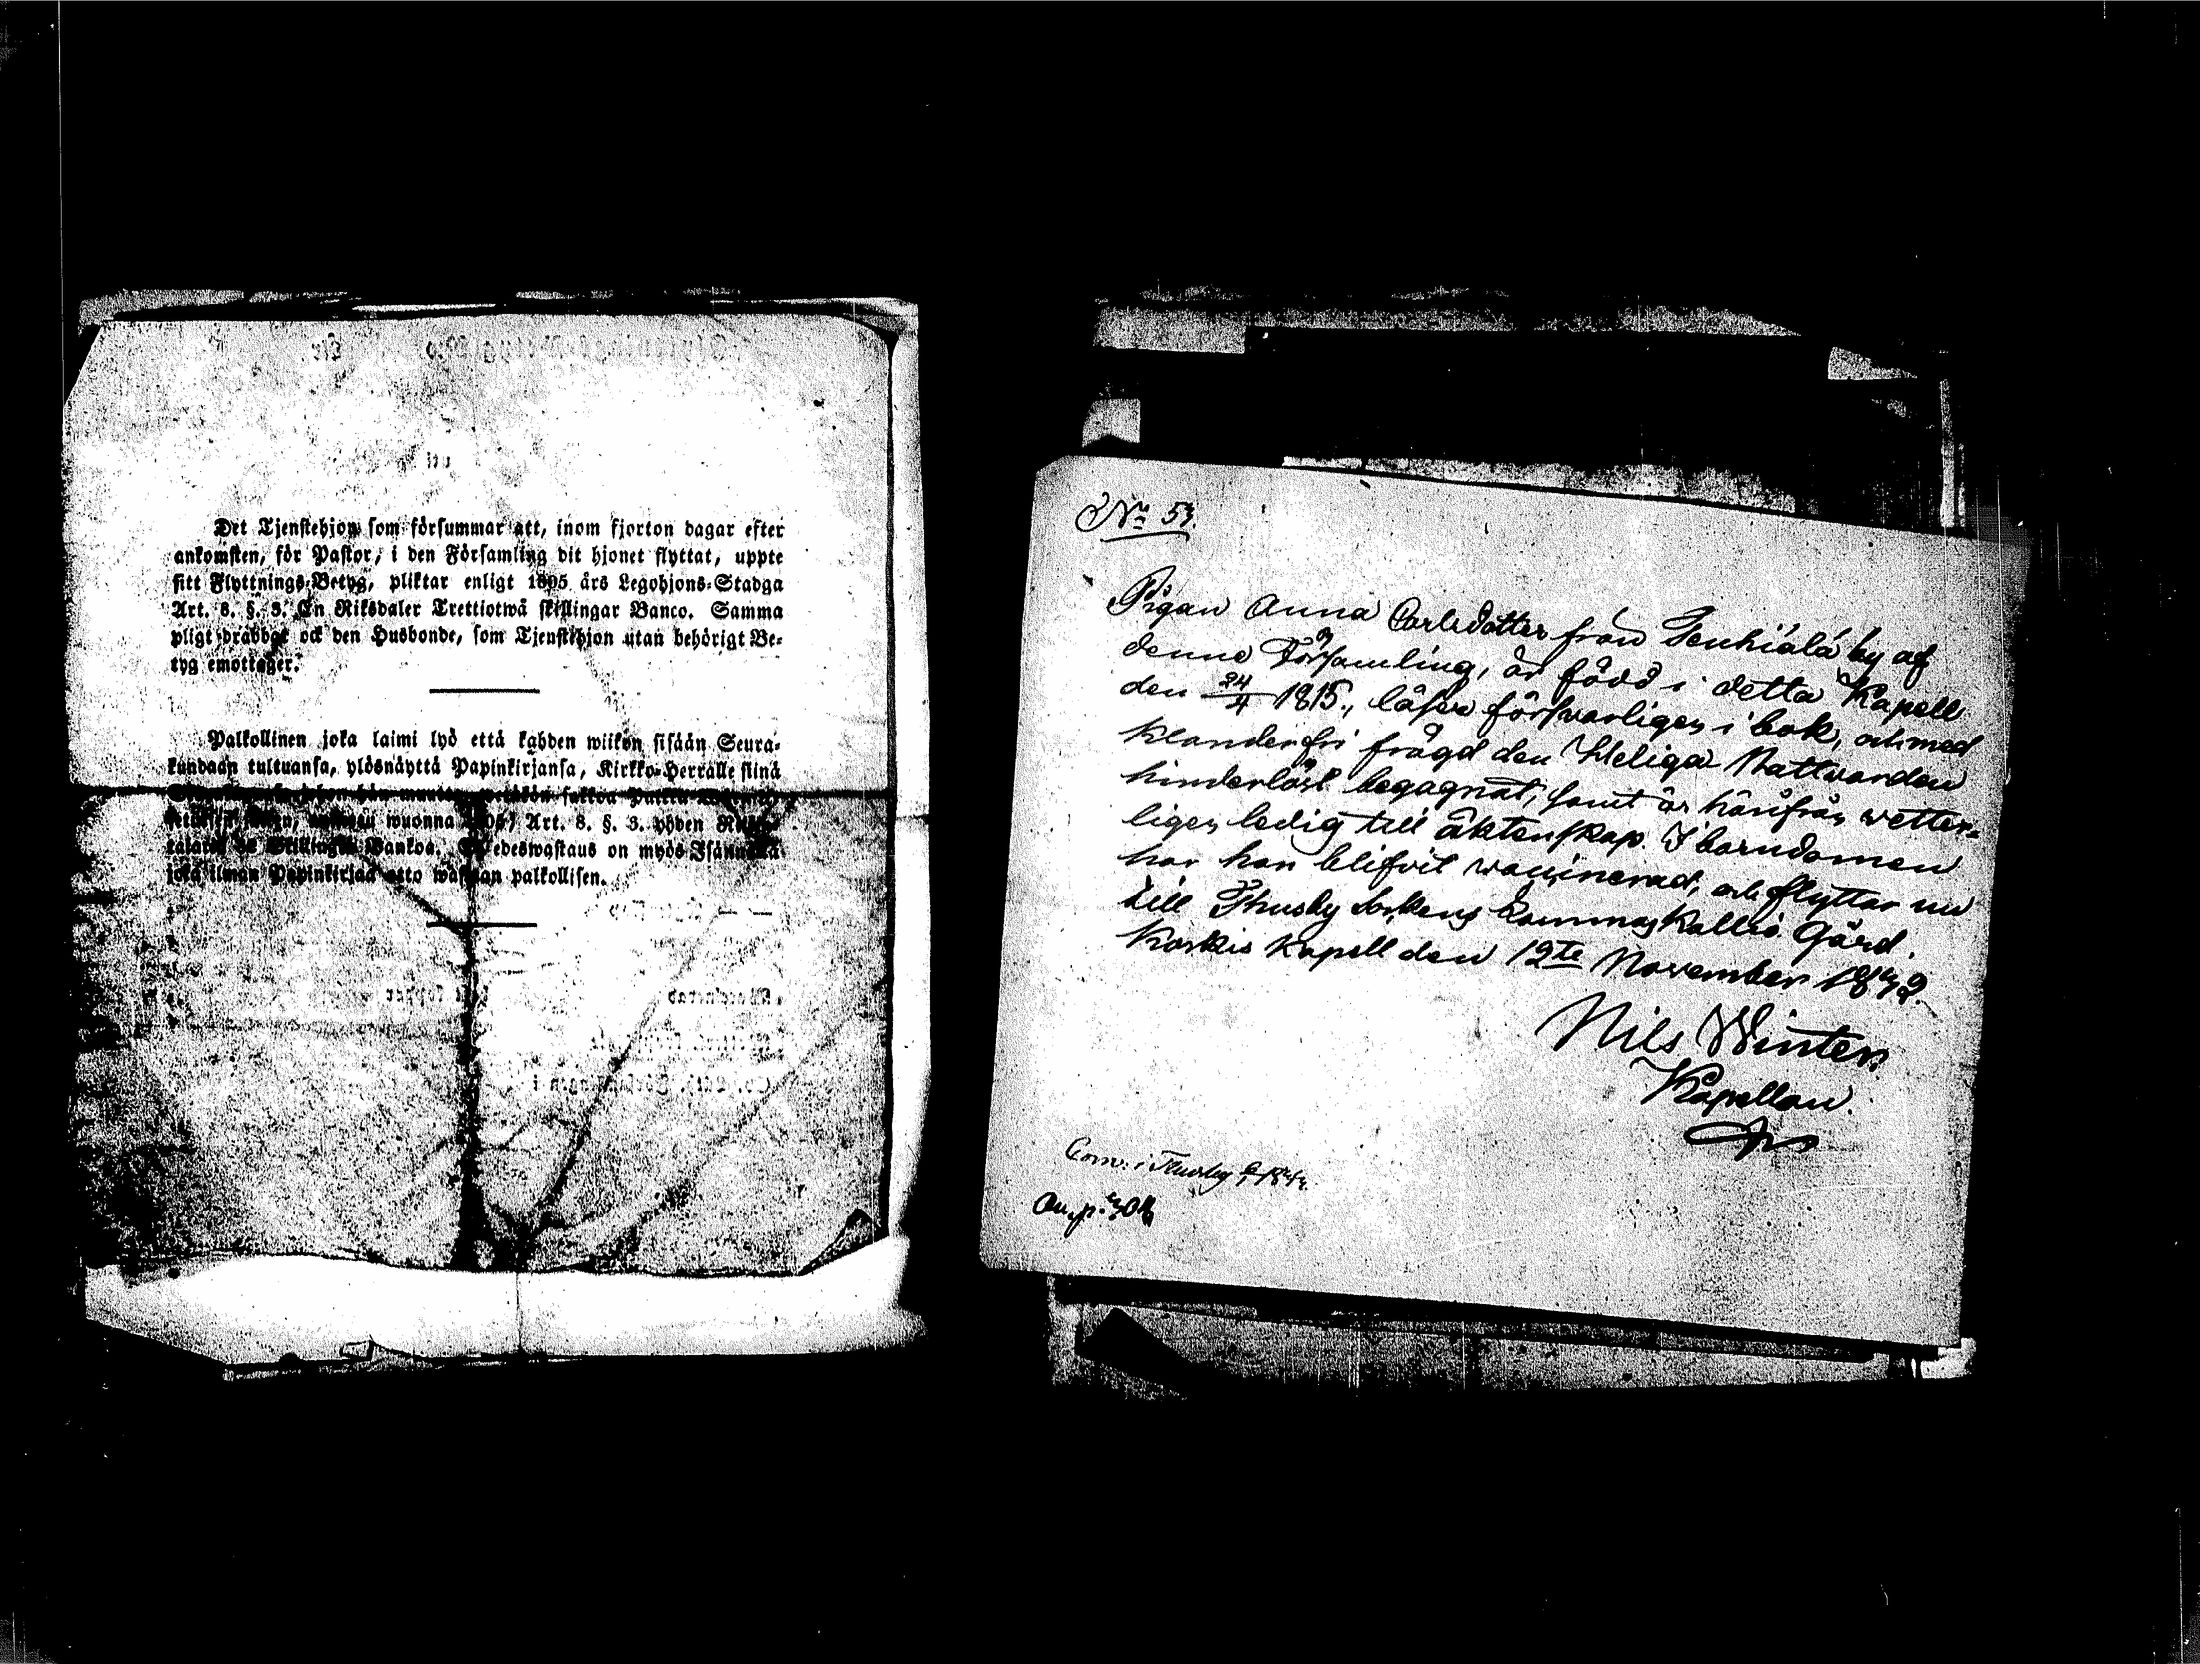 Det Tjenstehjon som försummar att, inom fjorton dagar efter
ankomsten, för Pastor, i den Församling dit hjonet flyttat, uppte
sitt Flyttnings-Betyg, pliktar enligt 1805 års Legohjons-Stadga
Art. 8. §. 3. En Riksdaler Trettiotwå skillingar Banco. Samma
pligt drabbar ock den Husbonde, som Tjenstehjon utan behörigt Be-
tyg emottager.
Palkollinen joka laimi lyö että kahden wiikon sisään Seura-
kundaan tultuansa, ylösnäyttä Papinkirjansa, Kirkko-Herralle siinä
wuonna Art. 8. §. 3. yhden
Bankoa. on myös
joka ilman Papinkirjaa otto palkollisen.
No 57.
Pigan Anna Carlsdotter från by af
denna Församling, är född i detta Kapell
den 24/4 1815., läser försvarligen i bok, och med
klanderfri frägd den Heliga Nattvarden
hinderlöst begagnat, samt är härifrån wetter-
ligen ledig till äktenskap. I barndomen
har hon blifvit vaccinerad, och flyttar nu
till Thusby Sockens Kallio Gård.
Korkis Kapell den 12te November 1842.
Nils Winter
Kapellan.